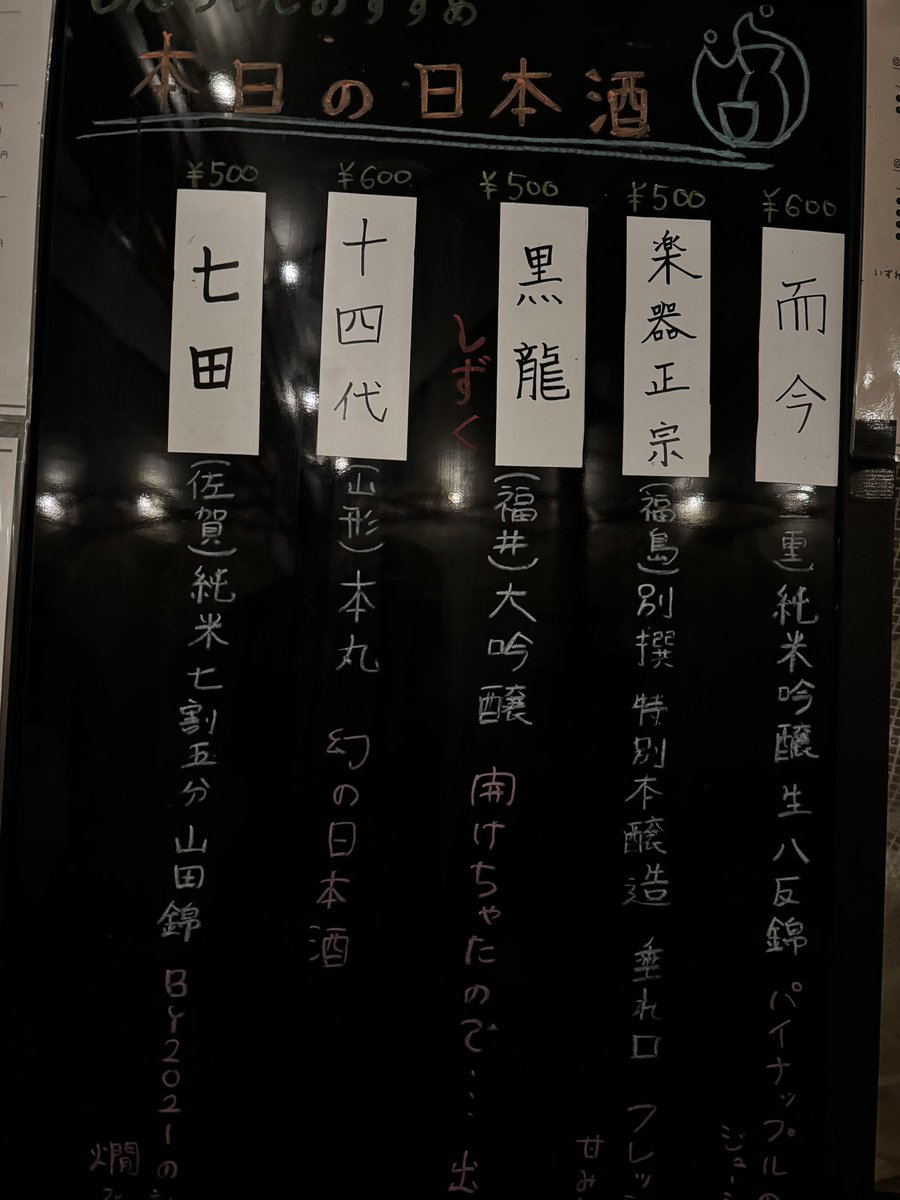 おすすめ
本日の日本酒
¥600
而今
(三重)純米吟醸 生 八反錦 パイナップルの
ジュー
¥500
楽器正宗
(福島)別撰 特別本醸造 垂れ口 フレッ
甘み
¥500
黒龍
しずく
(福井)大吟醸 開けちゃたので… 出
¥600
十四代
(山形)本丸 幻の日本酒
¥500
七田
(佐賀)純米七割五分 山田錦 BY2021の
燗
いずれ